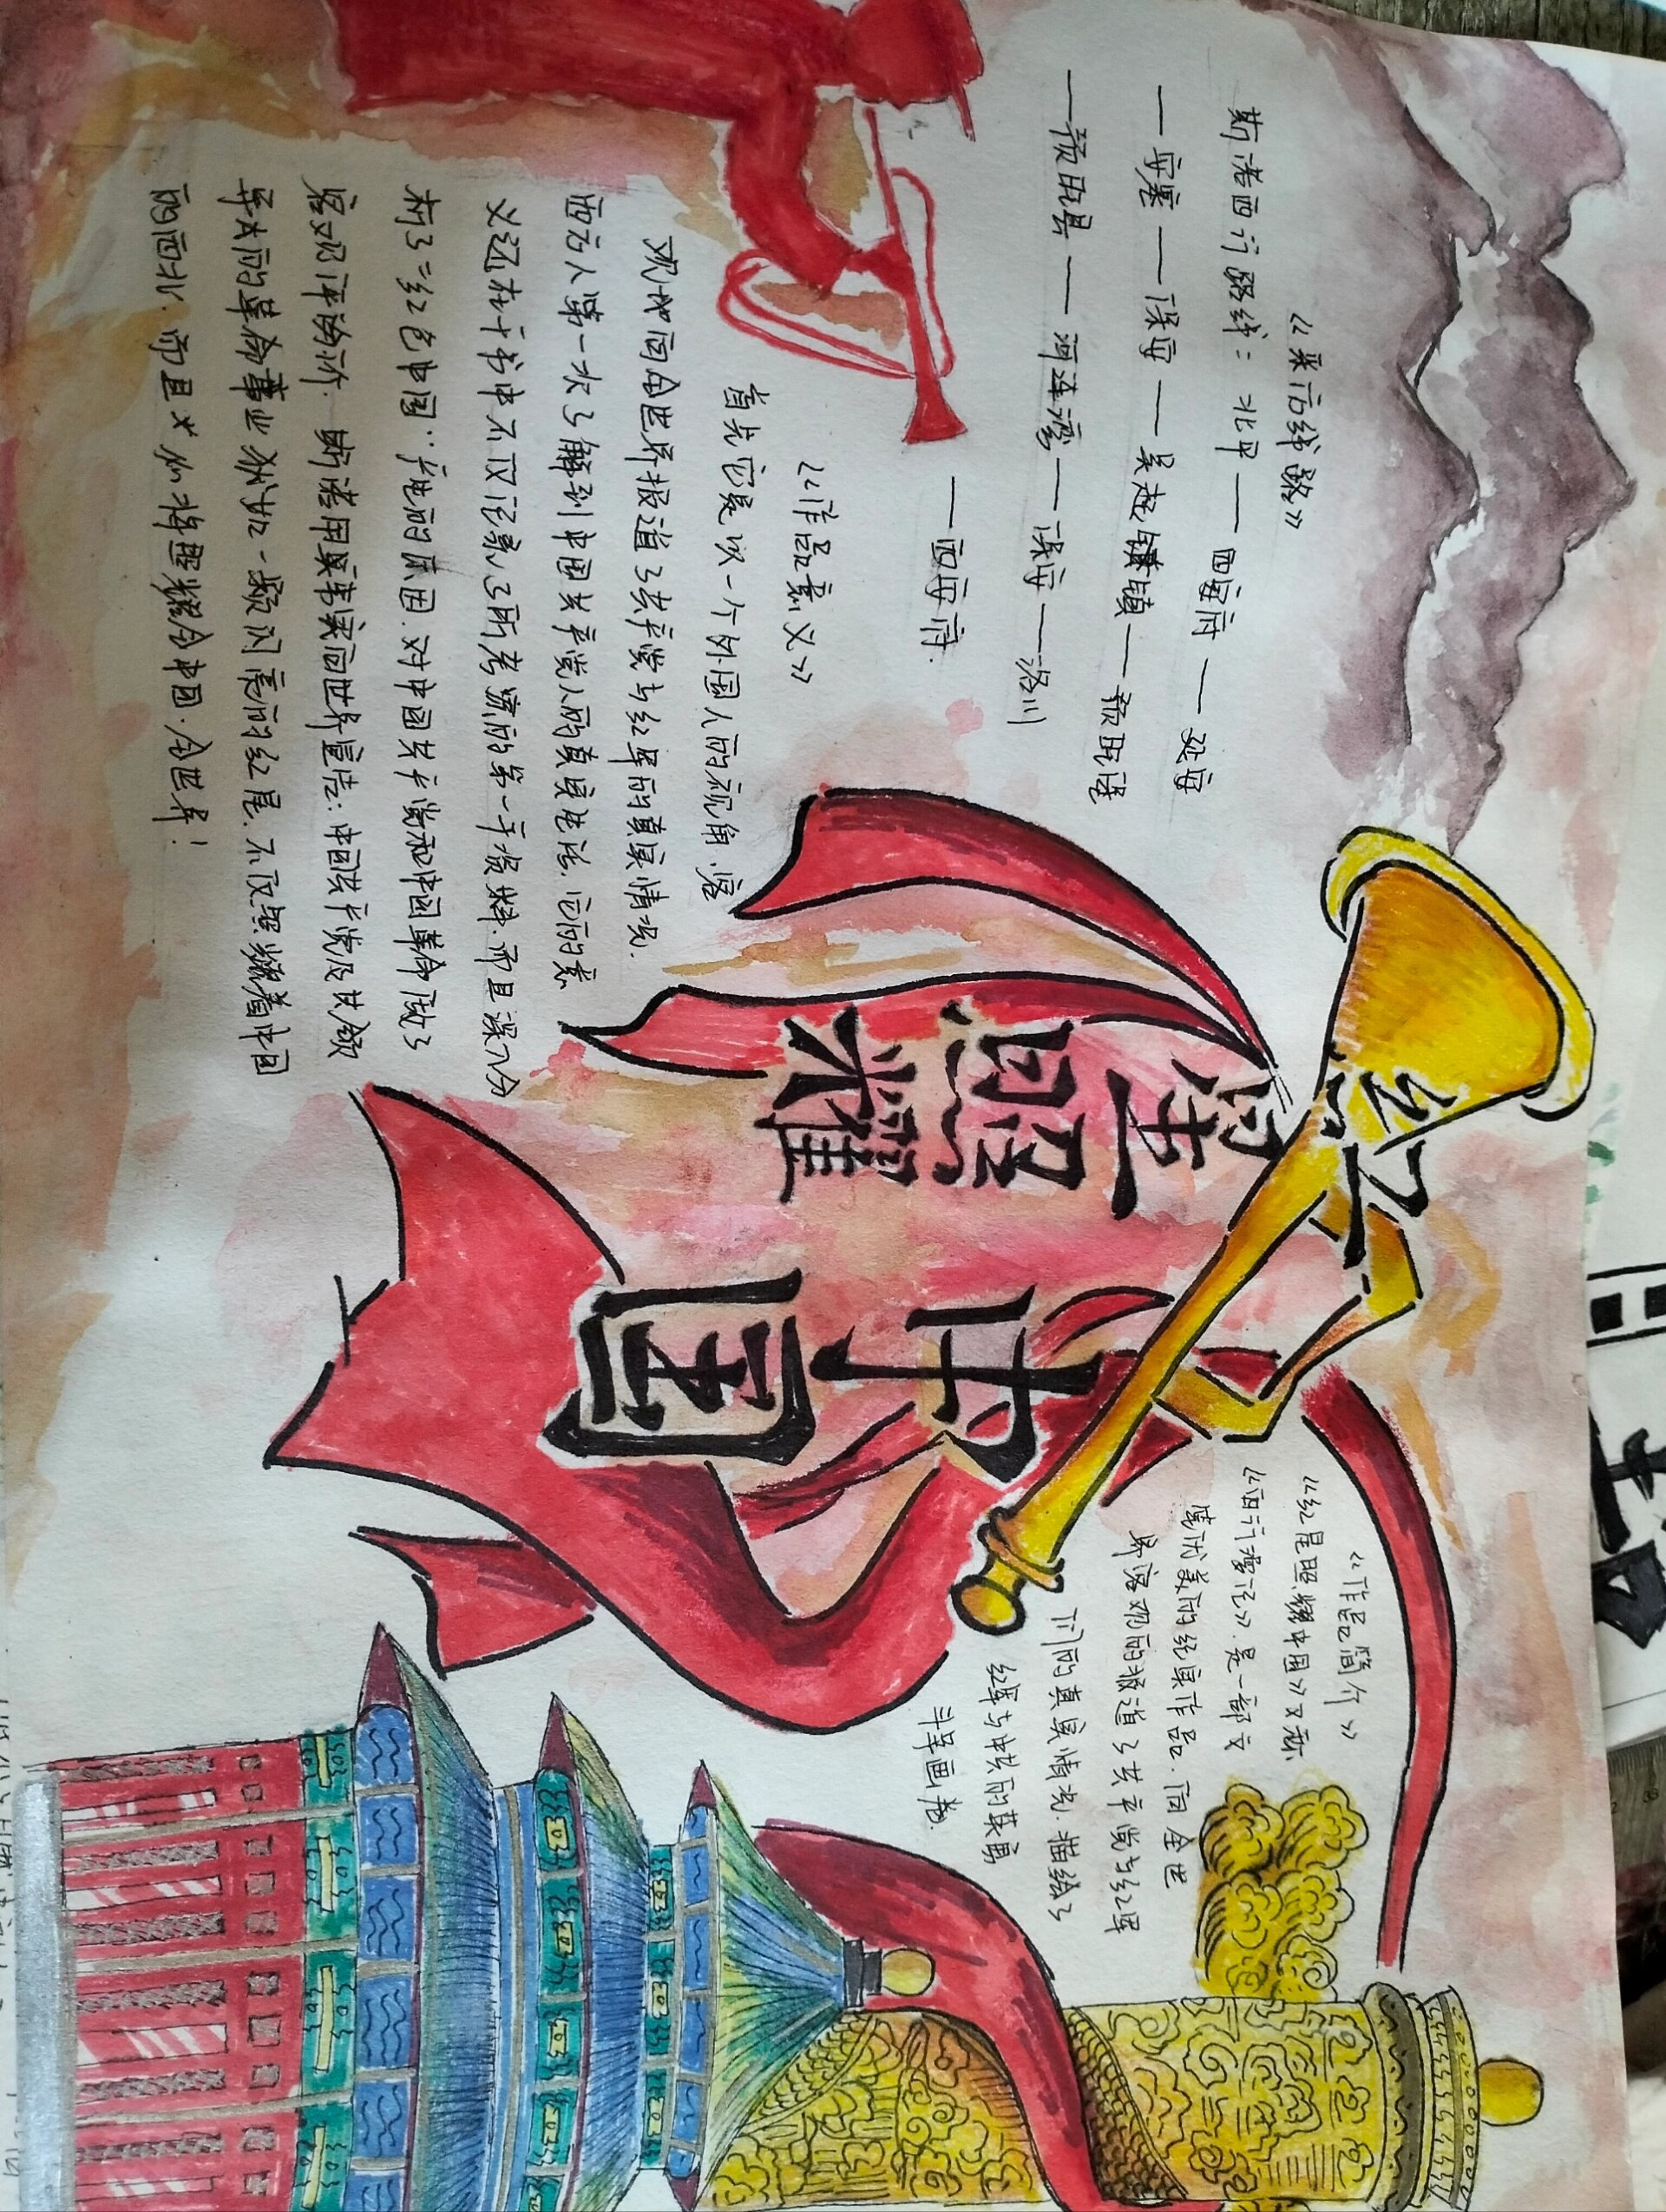 《采访线路》
斯诺西行路线：北平——西安府——延安
——安塞——保安——吴起镇——预旺堡
——预旺县——河连湾——保安——洛川
——西安府.
《作品意义》
首先它是以一个外国人的视角,客
观地向全世界报道了共产党与红军的真实情况.
西方人第一次了解到中国共产党人的真实生活,它的意
义还在于书中不仅记录了所考察的第一手资料.而且深入分
析了“红色中国”产生的原因.对中国共产党和中国革命做了
客观评论价.斯诺用事实向世界宣告:中国共产党及其领
导的革命事业犹如一颗闪亮的红星.不仅照耀着中国
的西北.而且必将照耀全中国.全世界!
红星
照耀
中国
《作品简介》
《红星照耀中国》又称
《西行漫记》是一部文
笔优美的纪实作品.向全世
界客观的报道了共产党与红军
们的真实情况.描绘了
红军与中共的英勇
斗争画卷.